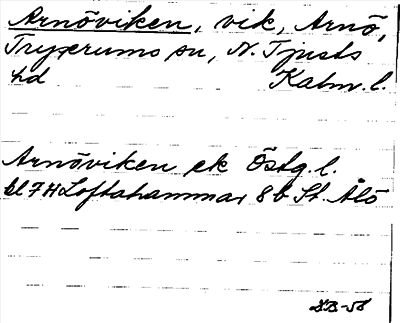 Arnöviken, vik, Arnö,
Tryserums sn, N. Tjusts
hd Kalm. l.
Arnöviken ek Östg. l.
bl 7 H Loftahammar 8b St. Ålö